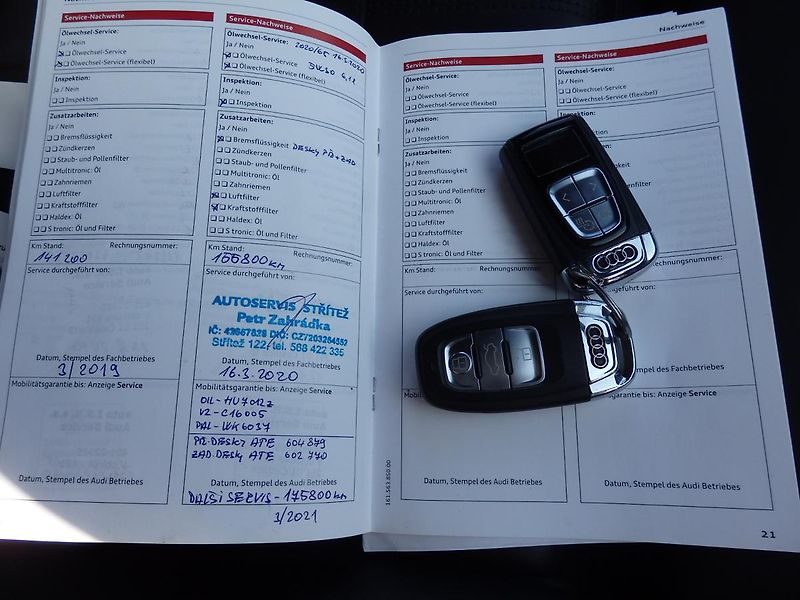 Service-Nachweise
Ölwechsel-Service:
Ja / Nein
Ölwechsel-Service
Ölwechsel-Service (flexibel)
Inspektion:
Ja / Nein
Inspektion
Zusatzarbeiten:
Ja / Nein
Bremsflüssigkeit
Zündkerzen
Staub- und Pollenfilter
Multitronic: Öl
Zahnriemen
Luftfilter
Kraftstofffilter
Haldex: Öl
S tronic: Öl und Filter
Km Stand: Rechnungsnummer:
141 200
Service durchgeführt von:
Datum, Stempel des Fachbetriebes
3/2019
Mobilitätsgarantie bis: Anzeige Service
Datum, Stempel des Audi Betriebes
Service-Nachweise
Ölwechsel-Service: 2020/05 16.3.2020
Ja / Nein
Ölwechsel-Service
Ölwechsel-Service (flexibel)
Inspektion:
Ja / Nein
Inspektion
Zusatzarbeiten:
Ja / Nein
Bremsflüssigkeit DESKY PŘ+ZAD
Zündkerzen
Staub- und Pollenfilter
Multitronic: Öl
Zahnriemen
Luftfilter
Kraftstofffilter
Haldex: Öl
S tronic: Öl und Filter
Km Stand: Rechnungsnummer:
155800km
Service durchgeführt von:
AUTOSERVIS STŘÍTEŽ
Petr Zahrádka
Střítež 122, tel. 568 422 335
Datum, Stempel des Fachbetriebes
16.3.2020
Mobilitätsgarantie bis: Anzeige Service
OIL - HU7012z
VZ - C16005
PAL - WK6037
PŘ. DESKY ATE 604879
ZAD. DESKY ATE 602770
Datum, Stempel des Audi Betriebes
DALŠÍ SERVIS - 175800km
3/2021
Nachweise
Service-Nachweise
Ölwechsel-Service:
Ja / Nein
Ölwechsel-Service
Ölwechsel-Service (flexibel)
Inspektion:
Ja / Nein
Inspektion
Zusatzarbeiten:
Ja / Nein
Bremsflüssigkeit
Zündkerzen
Staub- und Pollenfilter
Multitronic: Öl
Zahnriemen
Luftfilter
Kraftstofffilter
Haldex: Öl
S tronic: Öl und Filter
Km Stand:
Service durchgeführt von:
Datum, Stempel des Audi Betriebes
Service-Nachweise
Ölwechsel-Service:
Ja / Nein
Ölwechsel-Service
Ölwechsel-Service (flexibel)
Inspektion:
Rechnungsnummer:
Service durchgeführt von:
Datum, Stempel des Fachbetriebes
bis: Anzeige Service
Datum, Stempel des Audi Betriebes
161.563.850.00
21